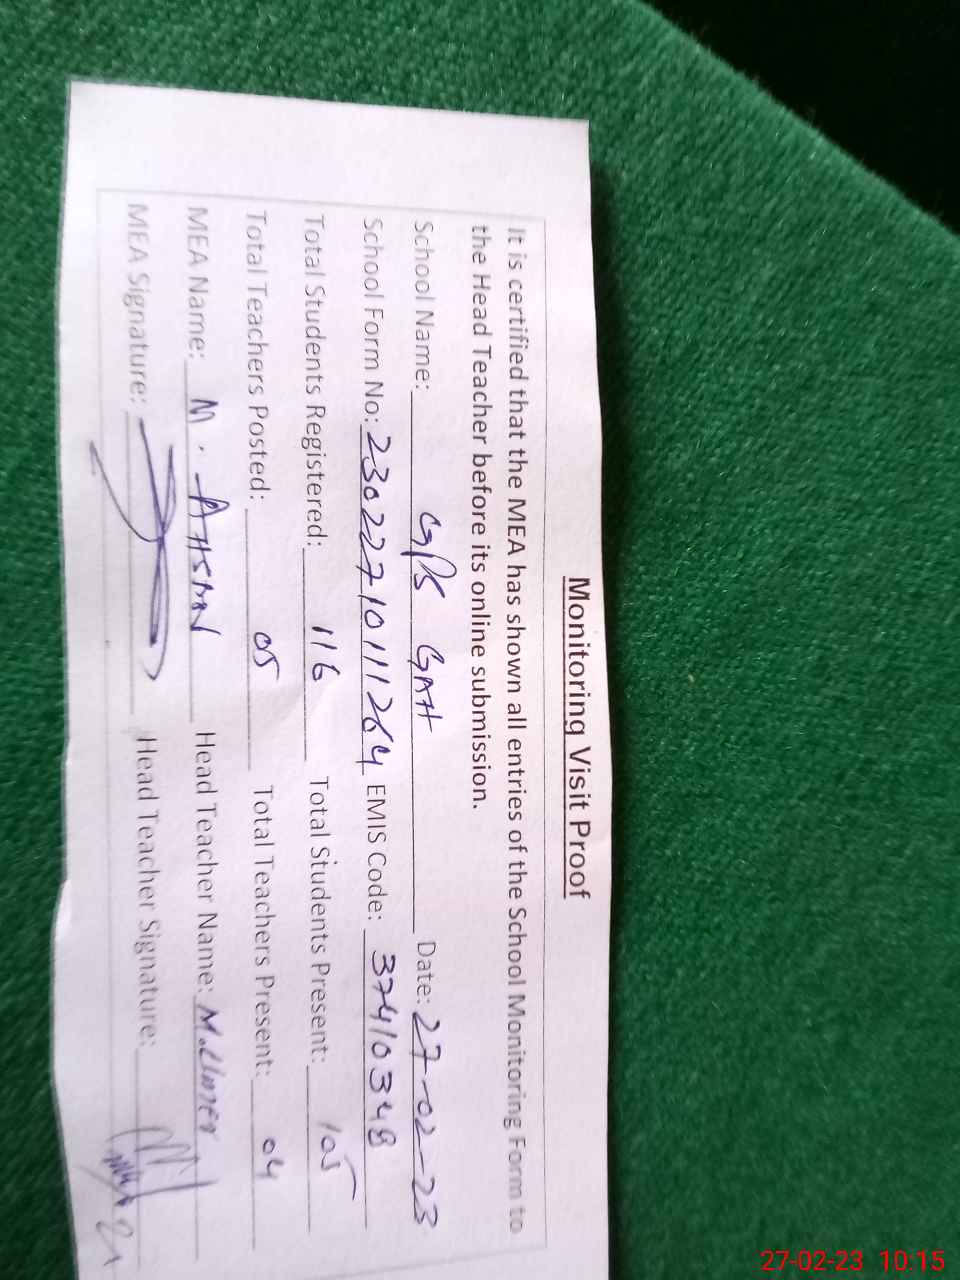 Monitoring Visit Proof
It is certified that the MEA has shown all entries of the School Monitoring Form to
the Head Teacher before its online submission.
School Name: GPS GAH Date: 27-02-23
School Form No: 23022710111264 EMIS Code: 37410348
Total Students Registered: 116 Total Students Present: 105
Total Teachers Posted: 05 Total Teachers Present: 04
MEA Name: M. AHSAN Head Teacher Name: M. Umer
MEA Signature: Head Teacher Signature:
27-02-23 10:15